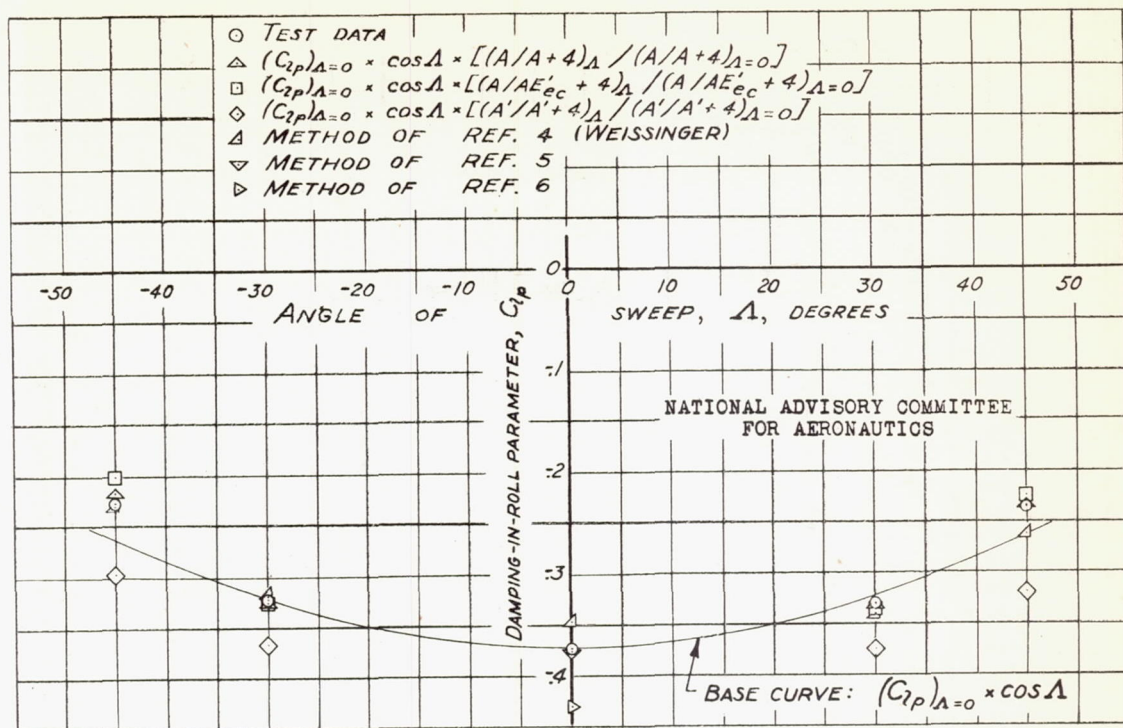 ⊙ TEST DATA
△ (C_lp)_Λ=0 × COSΛ × [(A/A+4)_Λ /(A/A+4)_Λ=0]
⊡ (C_lp)_Λ=0 × COSΛ × [(A/AE'ec + 4)_Λ /(A/AE'ec + 4)_Λ=0]
◇ (C_lp)_Λ=0 × COSΛ × [(A'/A'+4)_Λ /(A'/A'+4)_Λ=0]
◿ METHOD OF REF. 4 (WEISSINGER)
▽ METHOD OF REF. 5
▷ METHOD OF REF. 6
0
-50 -40 -30 -20 -10 0 10 20 30 40 50
ANGLE OF SWEEP, Λ, DEGREES
DAMPING-IN-ROLL PARAMETER, C_lp
-.1
NATIONAL ADVISORY COMMITTEE
FOR AERONAUTICS
-.2
-.3
-.4
BASE CURVE: (C_lp)_Λ=0 × COSΛ